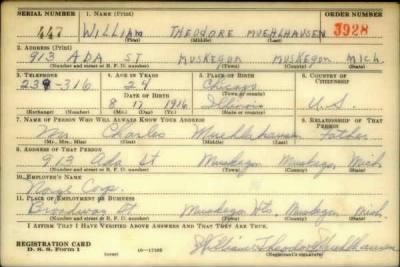 SERIAL NUMBER 1. NAME (Print) ORDER NUMBER
447 WILLIAM THEODORE MUEHLHAUSEN 3928
(First) (Middle) (Last)
2. ADDRESS (Print)
913 ADA ST MUSKEGON MUSKEGON MICH.
(Number and street or R. F. D. number) (Town) (County) (State)
3. TELEPHONE 4. AGE IN YEARS 5. PLACE OF BIRTH 6. COUNTRY OF CITIZENSHIP
239-316 24 Chicago
DATE OF BIRTH (Town or county)
8 17 1916 Illinois U.S.
(Exchange) (Number) (Mo.) (Day) (Yr.) (State or country)
7. NAME OF PERSON WHO WILL ALWAYS KNOW YOUR ADDRESS 8. RELATIONSHIP OF THAT PERSON
Charles Muehlhausen Father
(Mr., Mrs., Miss) (First) (Middle) (Last)
9. ADDRESS OF THAT PERSON
913 Ada St Muskegon, Muskegon, Mich
(Number and street or R. F. D. number) (Town) (County) (State)
10. EMPLOYER'S NAME
Corp.
11. PLACE OF EMPLOYMENT OR BUSINESS
Broadway St Muskegon Hts. Muskegon Mich.
(Number and street or R. F. D. number) (Town) (County) (State)
I AFFIRM THAT I HAVE VERIFIED ABOVE ANSWERS AND THAT THEY ARE TRUE.
REGISTRATION CARD
D. S. S. Form 1 William Theodore Muehlhausen
(Registrant's signature)